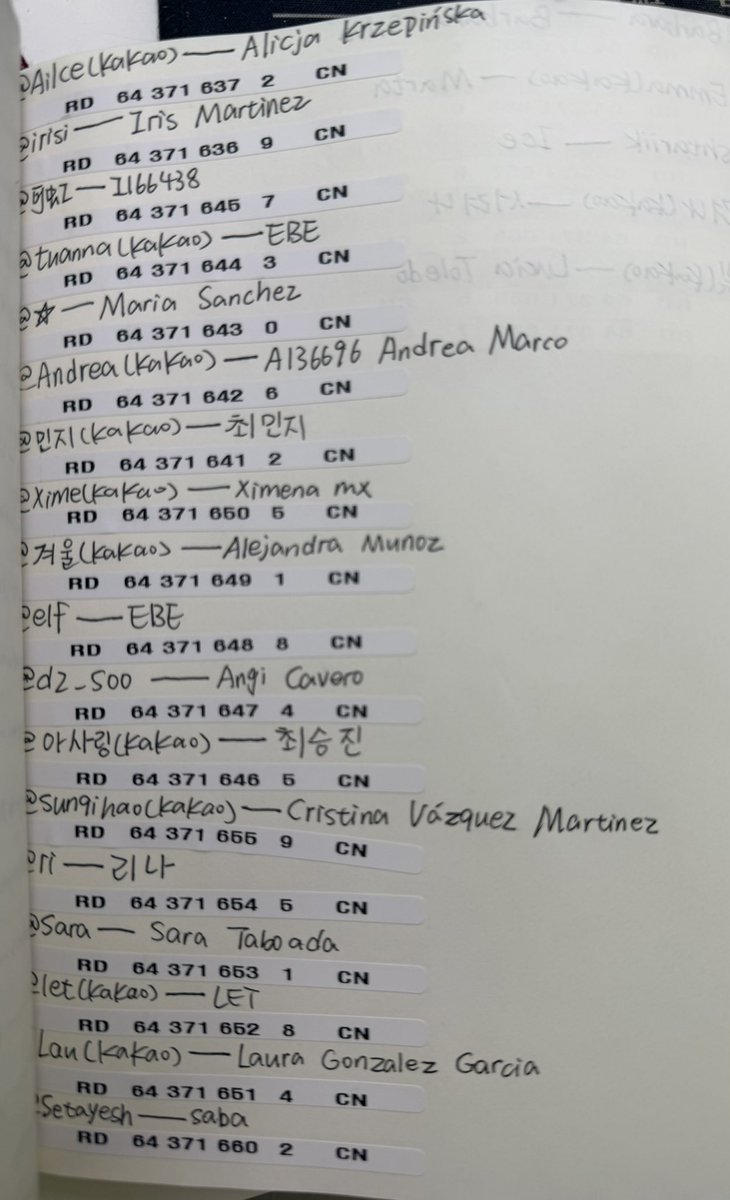 @Ailce(kakao) — Alicja Krzepińska
RD 64 371 637 2 CN
@irisi — Iris Martinez
RD 64 371 636 9 CN
— I166438
RD 64 371 645 7 CN
@tuanna(kakao) — EBE
RD 64 371 644 3 CN
@☆ — Maria Sanchez
RD 64 371 643 0 CN
@Andrea(kakao) — A136696 Andrea Marco
RD 64 371 642 6 CN
@민지(kakao) — 최민지
RD 64 371 641 2 CN
@Xime(kakao) — Ximena mx
RD 64 371 650 5 CN
@겨울(kakao) — Alejandra Munoz
RD 64 371 649 1 CN
@elf — EBE
RD 64 371 648 8 CN
@d2_soo — Angi Cavero
RD 64 371 647 4 CN
@아사링(kakao) — 최승진
RD 64 371 646 5 CN
@sungihao(kakao) — Cristina Vázquez Martinez
RD 64 371 655 9 CN
@ri — 리나
RD 64 371 654 5 CN
@Sara — Sara Taboada
RD 64 371 653 1 CN
@let(kakao) — LET
RD 64 371 652 8 CN
Lau(kakao) — Laura Gonzalez Garcia
RD 64 371 651 4 CN
@Setayesh — saba
RD 64 371 660 2 CN